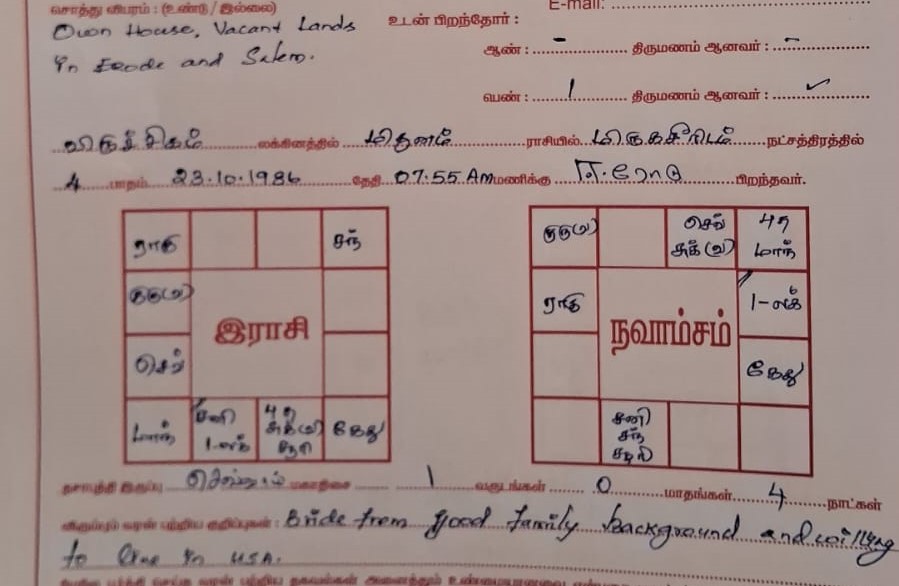 சொத்து விபரம் : (உண்டு / இல்லை)
Own House, Vacant Lands
in Erode and Salem.
உடன் பிறந்தோர் :
E-mail:
ஆண் : - திருமணம் ஆனவர் : -
பெண் : 1 திருமணம் ஆனவர் : ✓
விருச்சிகம் லக்கினத்தில் மிதுனம் ராசியில் மிருகசீரிடம் நட்சத்திரத்தில்
4 பாதம் 23.10.1986 தேதி 07.55 AM மணிக்கு ஈரோடு பிறந்தவர்.
ராகு சந்
குரு(வ)
இராசி
செவ்
மாந் சனி 4 கேது
1-லக் சுக்(வ)
குரு(வ) செவ் 4
சுக்(வ) மாந்
ராகு நவாம்சம் 1-லக்
கேது
சனி
சந்
தசாபுத்தி இருப்பு செவ்வாய் மகாதிசை 1 வருடங்கள் 0 மாதங்கள் 4 நாட்கள்
விரும்பும் வரன் பற்றிய குறிப்புகள் : Bride from good family background and willing
to live in USA.